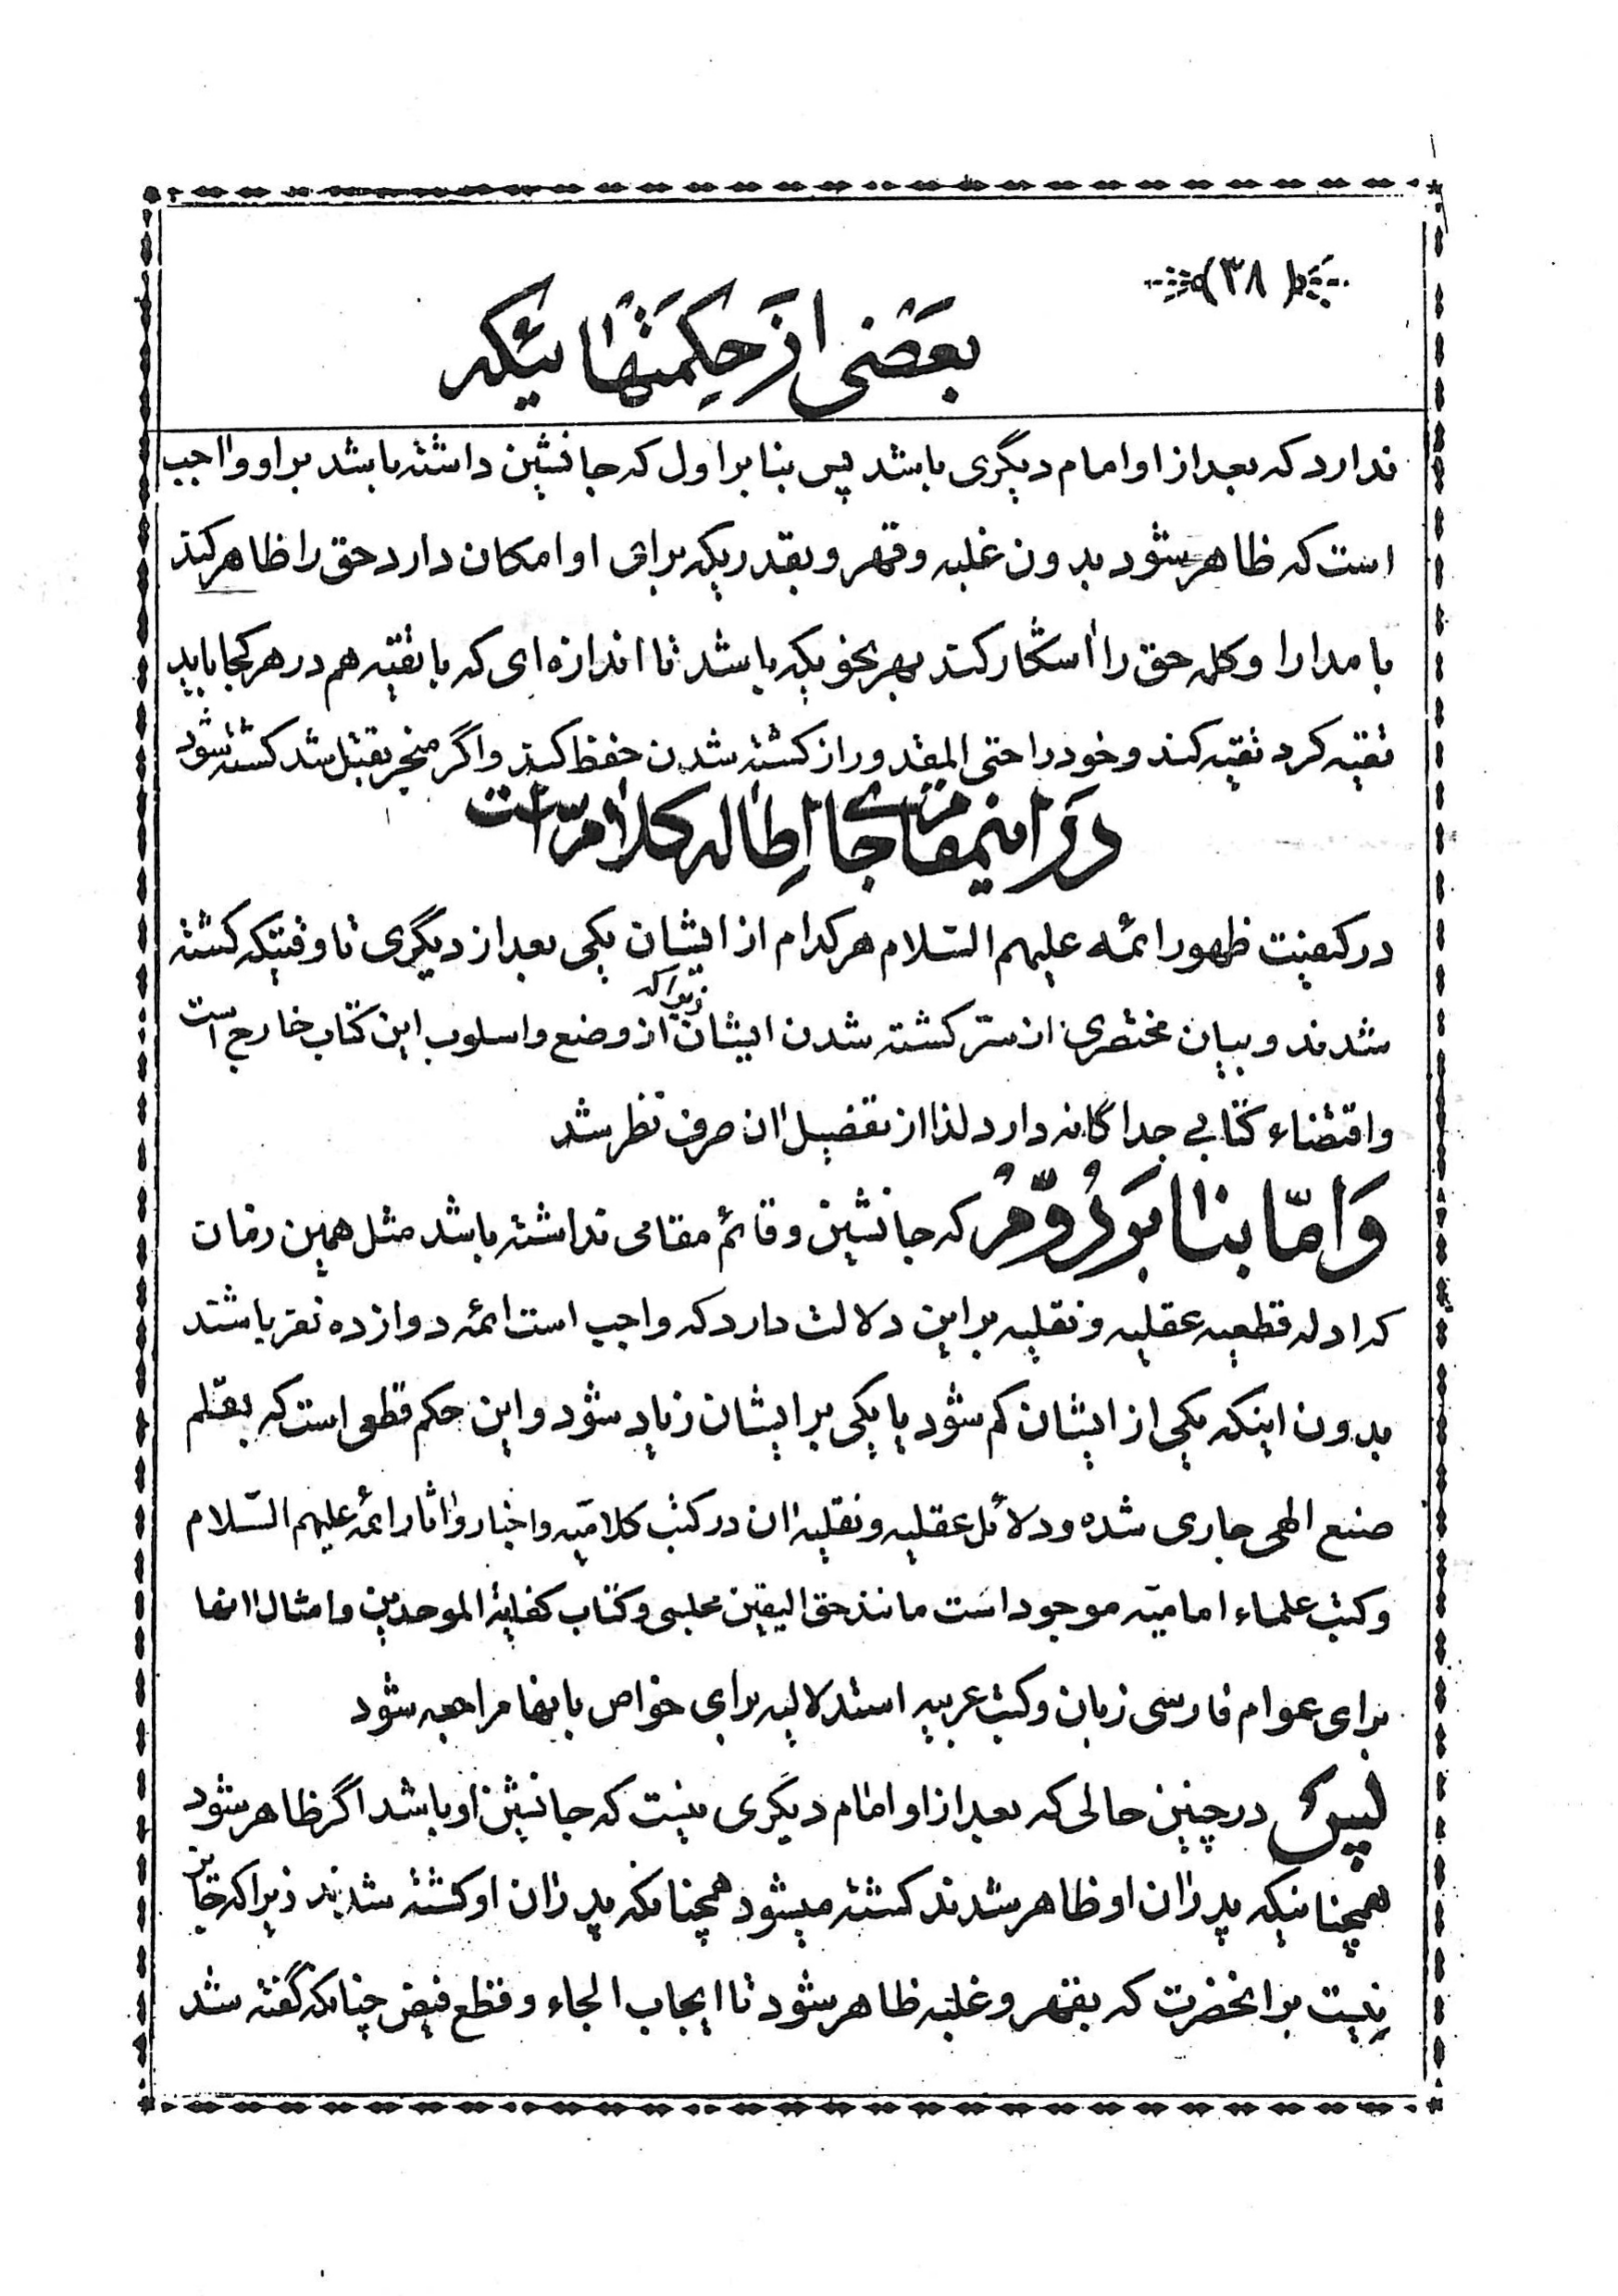 (۳۸)
بعضی از حکمتهائیکه
ندارد که بعد از او امام دیگری باشد پس بنا بر اول که جانشین داشته باشد بر او واجب
است که ظاهر شود بدون غلبه و قهر و بقدریکه برای او امکان دارد حق را ظاهر کند
با مدارا و کلمه حق را آشکار کند بهر نحویکه باشد تا اندازه ای که با تقیه هم در هر کجا باید
تقیه کرد تقیه کند و خود را حتی المقدور از کشته شدن حفظ کند و اگر منجر بقتل شد کشته شود
در اینمقام جای اطاله کلام است
در کیفیت ظهور ائمه علیهم السّلام هر کدام از ایشان یکی بعد از دیگری تا وقتیکه کشته
شدند و بیان مختصری از سرّ کشته شدن ایشان زیرا که از وضع و اسلوب این کتاب خارج است
و اقتضاء کتابی جداگانه دارد لذا از تفصیل آن صرف نظر شد
وَ امّا بنا بَر دُوّم که جانشین و قائم مقامی نداشته باشد مثل همین زمان
که ادله قطعیه عقلیه و نقلیه بر این دلالت دارد که واجب است ائمه دوازده نفر باشند
بدون اینکه یکی از ایشان کم شود یا یکی بر ایشان زیاد شود و این حکم قطعی است که بقلم
صنع الهی جاری شده و دلائل عقلیه و نقلیه آن در کتب کلامیّه و اخبار و آثار ائمه علیهم السّلام
و کتب علماء امامیّه موجود است مانند حق الیقین مجلسی و کتاب کفایة الموحدین و امثال آنها
برای عوام فارسی زبان و کتب عربیه استدلالیه برای خواص بآنها مراجعه شود
پس در چنین حالی که بعد از او امام دیگری نیست که جانشین او باشد اگر ظاهر شود
همچنانیکه پدران او ظاهر شدند کشته میشود همچنانکه پدران او کشته شدند زیرا که جایز
نیست بر آنحضرت که بقهر و غلبه ظاهر شود تا ایجاب الجاء و قطع فیض چنانکه گفته شد